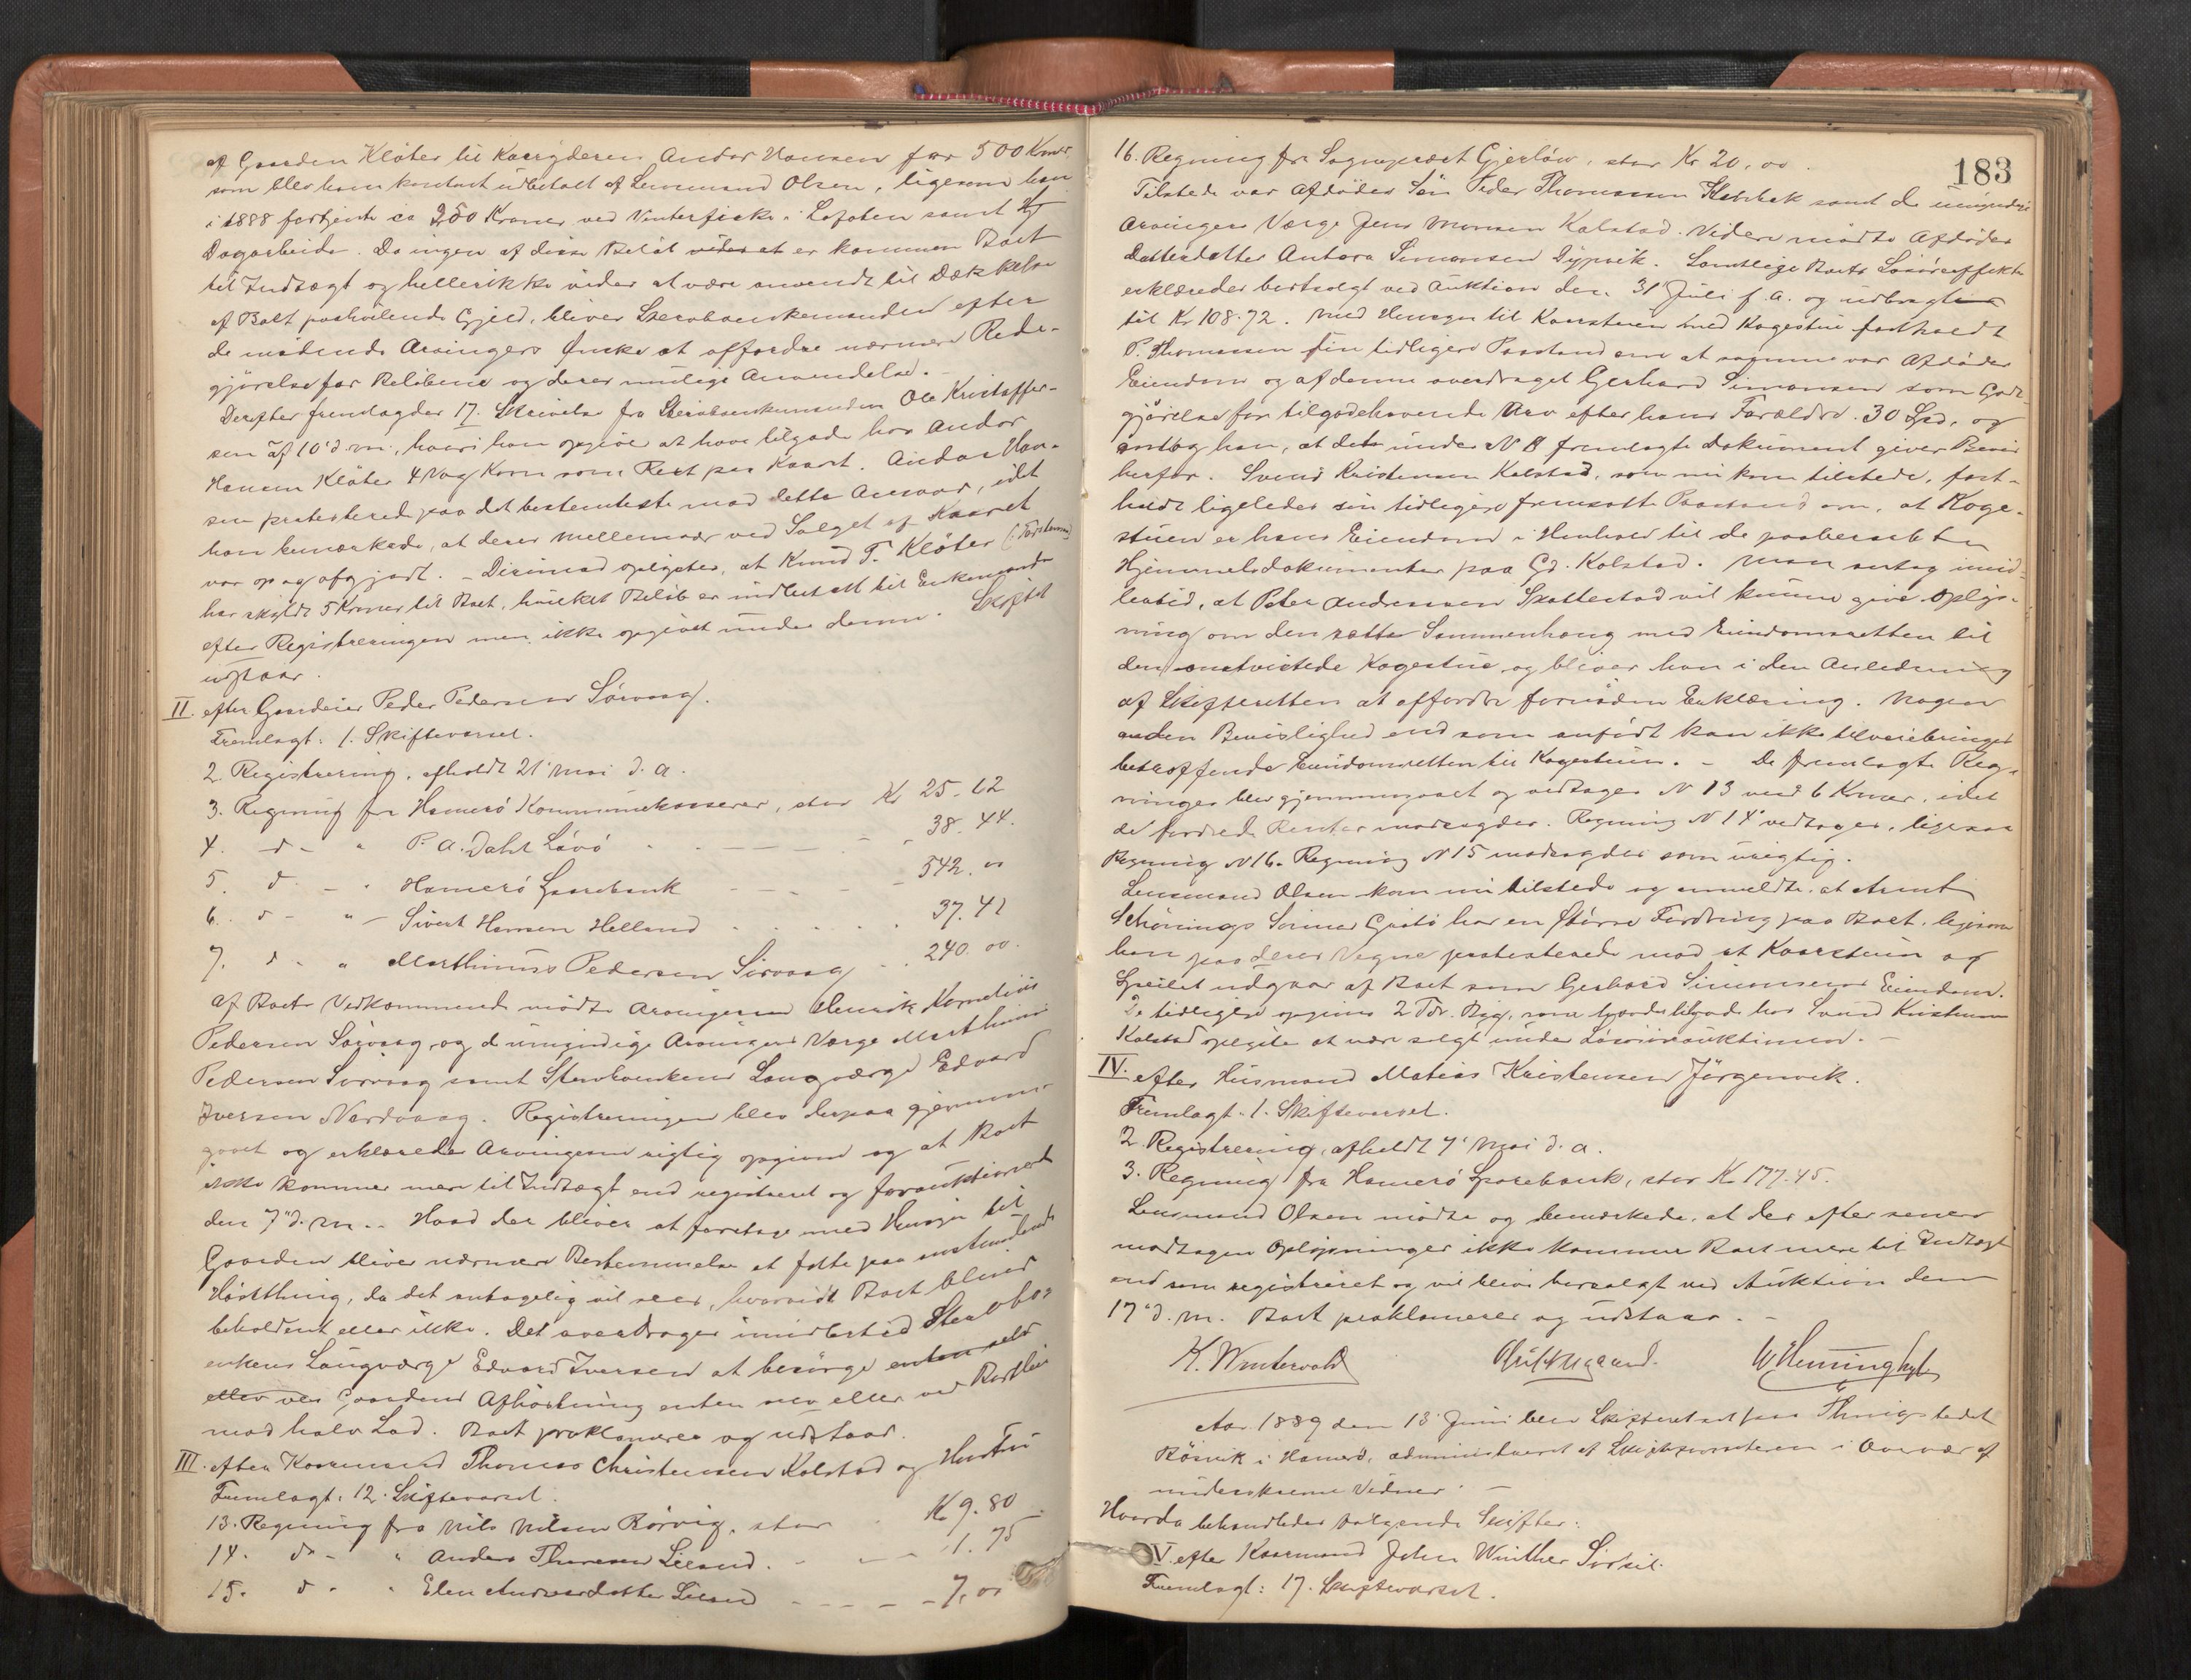 af Gaarden Kløter til Kaaryderen Andor Hansen for 500 Kroner,
som blev ham kontant udbetalt af Lensmand Olsen, ligesom han
i 1888 fortjente ca 200 Kroner ved Vinterfiske i Lofoten samt
Dagarbeide. Da ingen af disse Beløb vides at er kommen Boet
til Indtægt og heller ikke vides at være anvendt til Dækkelse
af Boet paahvilende Gjeld, bliver Stervboenkemanden efter
de mødende Arvingers Ønske at affordre nærmere Rede-
gjørelse for Beløbene og deres mulige Anvendelse. -
Derefter fremlagdes 17. Skrivelse fra Stervboenkemanden Ole Kristoffer-
sen af 10' d. m., hvori han opgiver at have tilgode hos Andor
Hansen Kløter 4 Vog Korn som Rest paa Kaaret. Andor Han-
sen protesterede paa det bestemteste mod dette Ansvar, idet
han bemærkede, at deres Mellemvær ved Salget af Kaaret
var op og afgjort. - Derimod oplystes, at Knud T. Kløter
har skyldt 5 Kroner til Boet, hvilket Beløb er indbetalt til Enkemanden
efter Registreringen men ikke opgivet under denne. Skiftet
udstaar.
II. efter Gaardeier Peder Pedersen Sørvaag.
Fremlagt: 1. Skiftevarsel.
2. Registrering, afholdt 21' Mai d. a.
3. Regning fra Hamerø Kommunekasserer, stor Kr 25.62
4. do - " P. A. Dahl Løvø - - - 38.44.
5. do - " Hamerø Sparebank - - - 542.00
6. do - " Sivert Hansen Helland . . . . 37.41
7. do - " Marthinus Pedersen Sørvaag - . 240.00.
Af Boets Vedkommende mødte Arvingerne Henrik Kornelius
Pedersen Sørvaag, og de umyndige Arvingers Værge Marthinus
Pedersen Sørvaag samt Stervboenkens Laugværge Edvard
Iversen Nordvaag. Registreringen blev derpaa gjennem-
gaaet og erklærede Arvingerne rigtig opgivet og at Boet
ikke kommer mere til Indtægt end registreret og forauktioneret
den 7' d. m. - Hvad der bliver at foretage med Hensyn til
Gaarden bliver nærmere Bestemmelse at fatte paa anstundende
Høstthing, da det antagelig vil sees, hvorvidt Boet bliver
beholdent eller ikke. Det overdrages imidlertid Stervbo-
enkens Laugværge Edvard Iversen at besørge enten selv
eller ved Gaardens Afhøstning enten selv eller ved Bortleie
mod halv Lod. Boet proklameres og udstaar.
III. efter Kaarmand Thomas Christensen Kolstad og Hustru
Fremlagt: 12. Skiftevarsel.
13. Regning fra Nils Nilsen Rørvig, stor . Kr 9.80
14. do - " Anders Thoresen Leisund. - - 1.75
15. do - " Elen Andreasdatter Leisund - - - - 7.00
183
16. Regning fra Sogneprest Gjerløw, stor Kr 20,00.
Tilstede var Afdødes Søn Peder Thomassen Klebbek samt de umyndige
Arvingers Værge Jens Monsen Kalstad. Videre mødte Afdødes
Datterdatter Antora Simonsen Dypvik. Samtlige Boets Løsøreeffekter
erklæredes bortsolgt ved Auktion den 31' Juli f. A. og udbragtes
til Kr 108.72. Med Hensyn til Kaarstuen med Kogestue fastholdt
P. Thomassen sin tidligere Paastand om at samme var Afdødes
Eiendom og af denne overdraget Gerhard Simonsen som Godt-
gjørelse for tilgodehavende Arv efter hans Forældre 30 Spd. og
antog han, at det under N 8 fremlagte Dokument giver Bevis
herfor. Svend Kristensen Kolstad, som nu kom tilstede, fast-
holdt ligeledes sin tidligere fremsatte Paastand om, at Koge-
stuen er hans Eiendom i Henhold til de paaberaabte
Hjemmelsdokumenter paa Gd. Kolstad. Man antog imid-
lertid, at Peter Andreassen Skottestad vil kunne give Oplys-
ning om den rette Sammenhæng med Eiendomsretten til
den omtvistede Kogestue og bliver han i den Anledning
af Skifteretten at affordre fornøden Erklæring. Nogen
anden Bevislighed end som anført kan ikke tilveiebringes
betræffende Eiendomsretten til Kogestuen. - De fremlagte Reg-
ninger blev gjennemgaaet og vedtages N 13 med 6 Kroner, idet
de fordrede Renter modsagdes. Regning N 14 vedtages, ligesaa
Regning N 16. Regning N 15 modsagdes som urigtig.
Lensmand Olsen kom nu tilstede og anmeldte, at Arnt
Schønings Sønner har en større Fordring paa Boet, ligesom
han paa deres Vegne protesterede mod at Kaarstuen og
Speilet udgaar af Boet som Gerhard Simonsens Eiendom.
De tidligere opgivne 2 Tdr. Byg, som havdes tilgode hos Svend Kristensen
Kolstad oplystes at være solgt under Løsøreauktionen. -
IV. efter Husmand Matias Kristensen Jørgenvik.
Fremlagt: 1. Skiftevarsel.
2. Registrering, afholdt 7' Mai d. a.
3. Regning fra Hamerø Sparebank, stor Kr 177.45.
Lensmand Olsen mødte og bemærkede, at der efter senere
modtagen Oplysninger ikke kommer Boet mere til Indtægt
end som registreret og vil blive borsolgt ved Auktion den
17' d. m. Boet proklameres og udstaar. -
K. Wintervold W Henningsen
Aar 1889 den 13' Juni blev Skifteret sat paa Thingstedet
Røsvik i Hamerø, administreret af Skifteforvalteren i Overvær af
underskrevne Vidner. -
Hvorda behandledes følgende Skifter:
V. efter Kaarmand John Winther
Fremlagt: 17. Skiftevarsel.